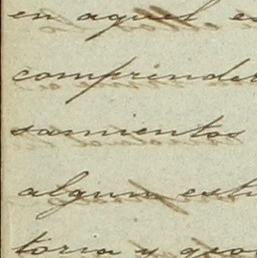 en aquel es
comprinder
samientos
alguna estr
toria y geo